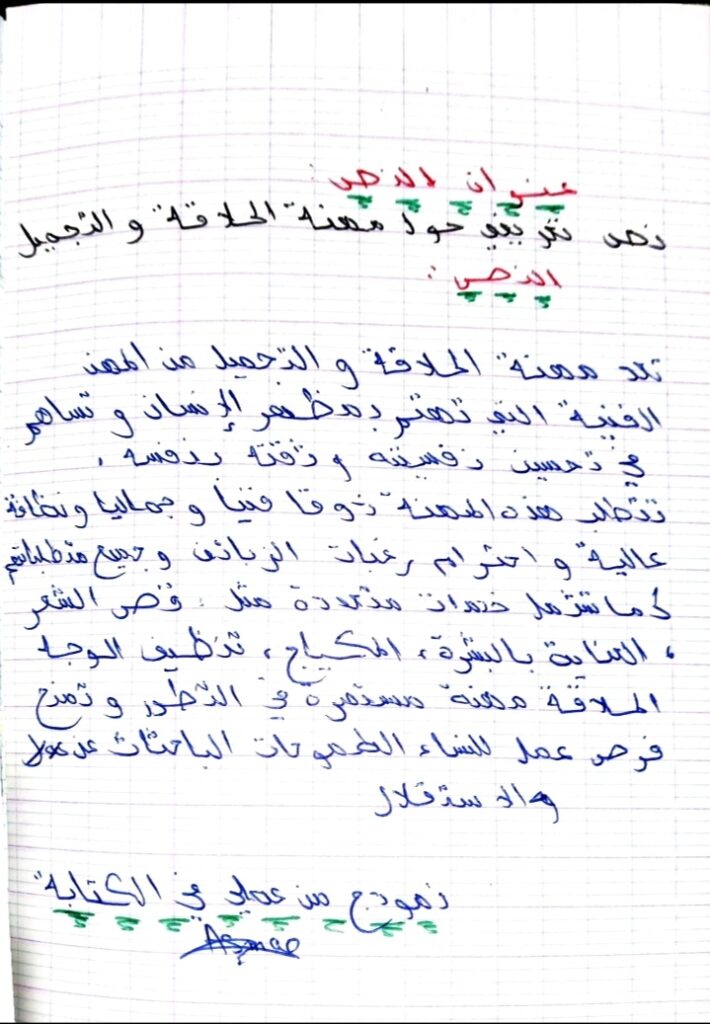 عنوان النص :
نص تعريفي حول مهنة الحلاقة و التجميل
النص :
تعد مهنة الحلاقة و التجميل من المهن
الفنية التي تهتم بمظهر الإنسان و تساهم
في تحسين نفسيته و ثقته بنفسه .
تتطلب هذه المهنة ذوقا فنيا و جماليا و نظافة
عالية و احترام رغبات الزبائن و جميع متطلباتهم
كما تشمل خدمات متعددة مثل : قص الشعر
، العناية بالبشرة ، المكياج ، تنظيف الوجه
الحلاقة مهنة مستمرة في التطور و تمنح
فرص عمل للنساء الطموحات الباحثات عن
والاستقلال
نموذج من عملي في الكتابة
Asmae